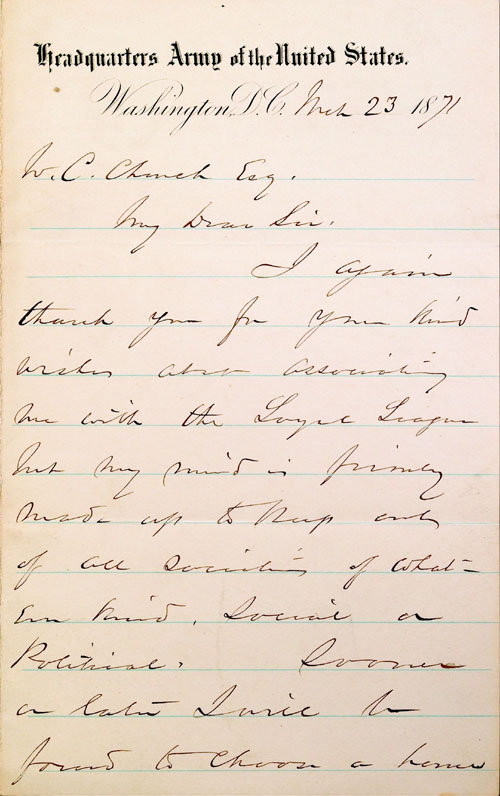 Headquarters Army of the United States.
Washington, D.C. Mch 23 1871
W. C. Church Esq.
My Dear Sir.
I again
thank you for your kind
wishes about associating
me with the Loyal League
but my mind is firmly
made up to keep out
of all societies of what-
ever kind, Social or
Political. Sooner
or later I will be
forced to choose a home